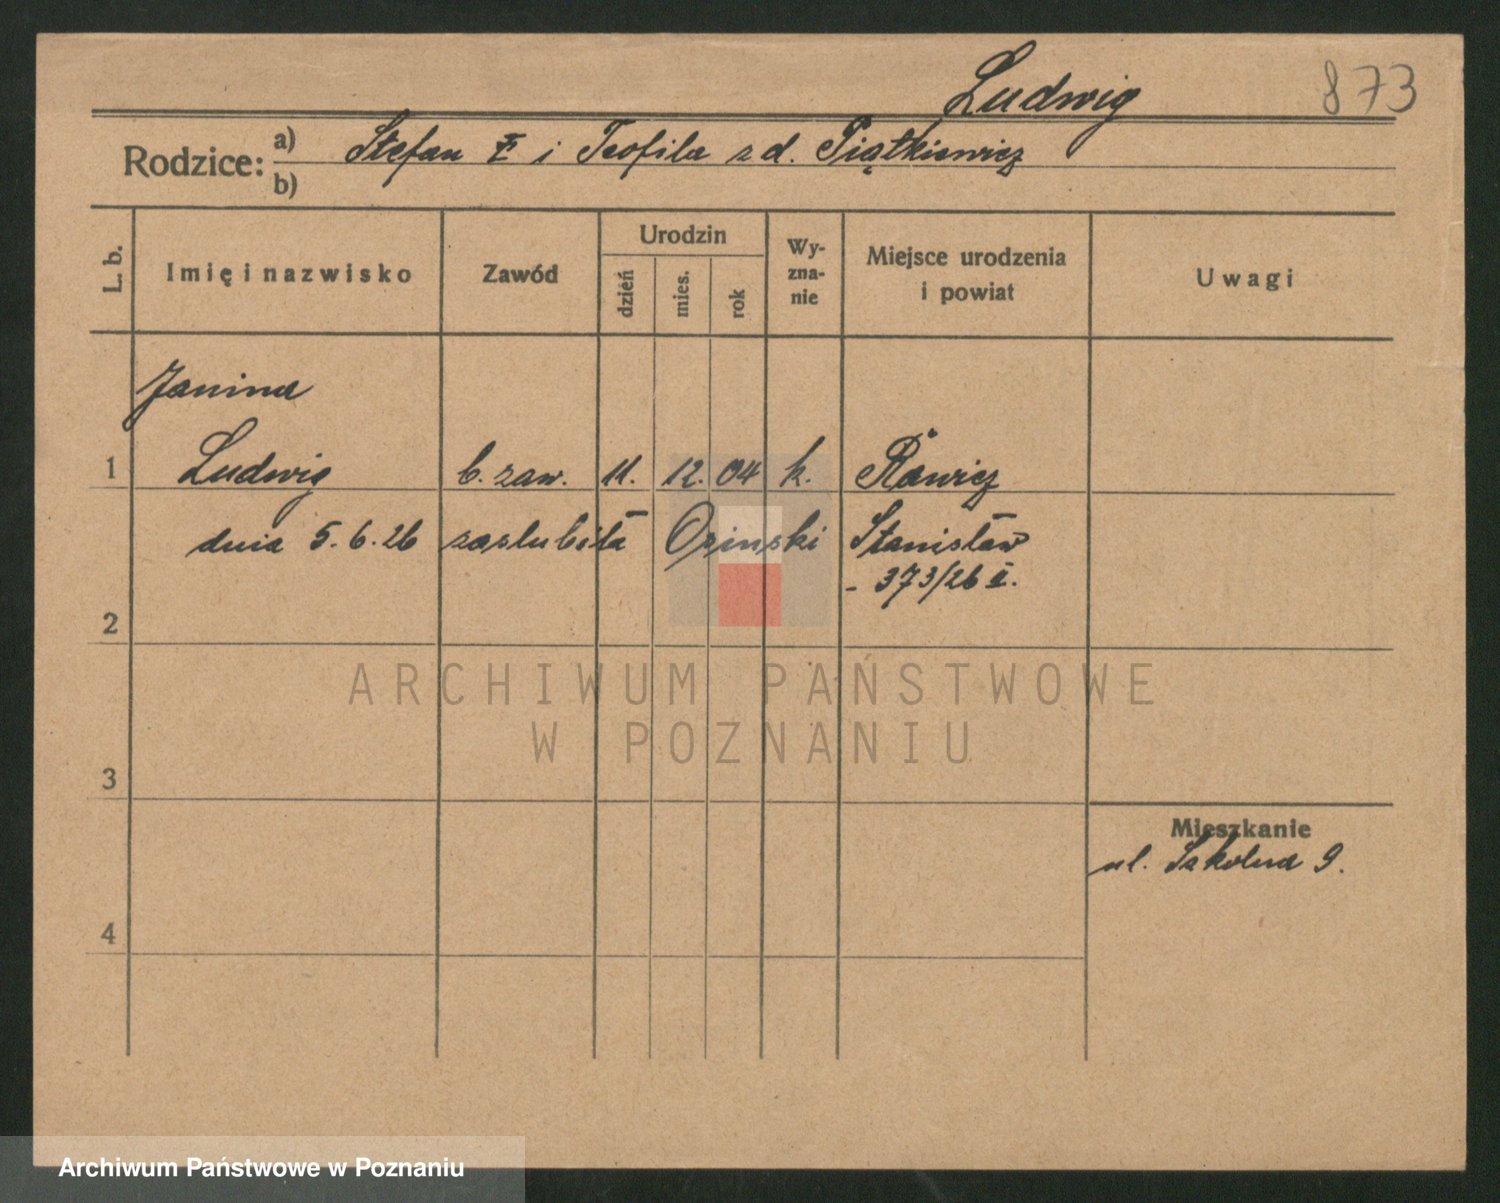 Ludwig 873
Rodzice: a) Stefan i Teofila z d. Piątkiewicz
b)
L. b. Imię i nazwisko Zawód Urodzin dzień mies. rok Wy-zna-nie Miejsce urodzenia i powiat Uwagi
Janina
1 Ludwig b. zaw. 11. 12. 04 k. Rawicz
dnia 5.6.26 zaslubiła Osinski Stanisław
- 373/26 II.
2
ARCHIWUM PAŃSTWOWE
W POZNANIU
3
Mieszkanie
ul. Szkolna 9.
4
Archiwum Państwowe w Poznaniu